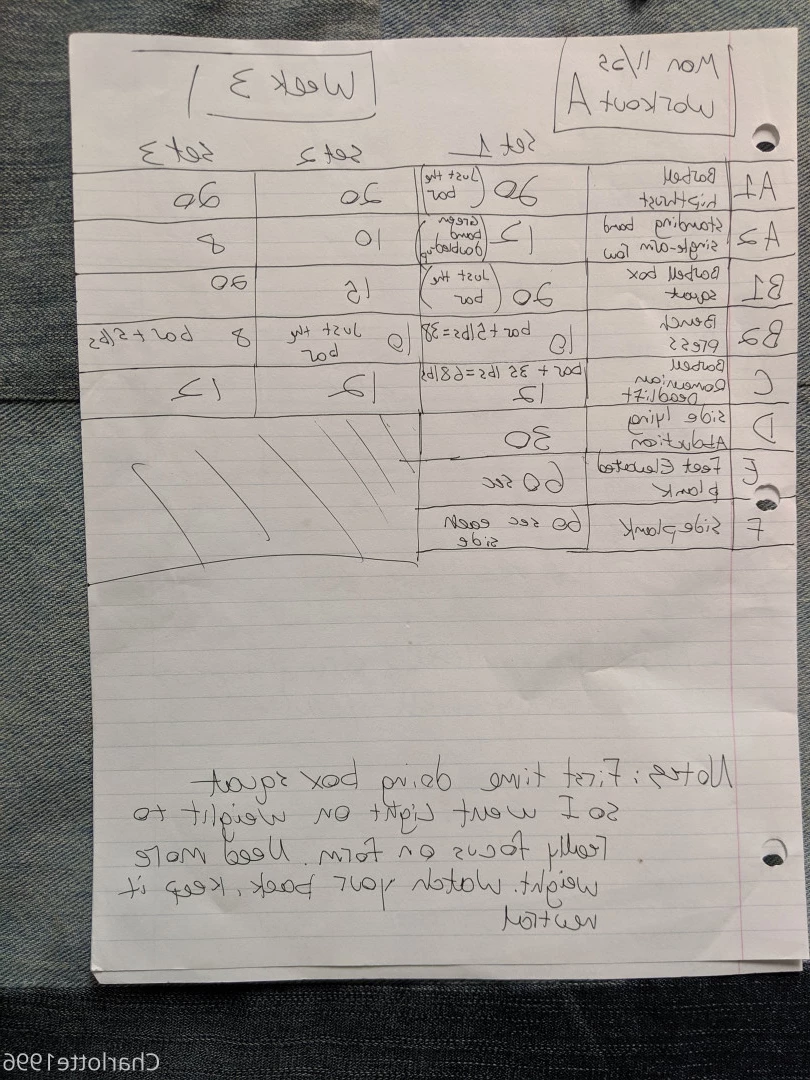 Mon 11/25
Workout A
Week 3
Set 1 Set 2 Set 3
A1 Barbell hipthrust 20 (Just the bar) 20 20
A2 Standing band single-arm row 12 (Green band doubled up) 10 8
B1 Barbell box squat 20 (Just the bar) 15 20
B2 Bench press 10 bar + 5 lbs = 38 10 Just the bar 8 bar + 5 lbs
C Barbell Romanian Deadlift bar + 35 lbs = 68 lbs 12 12 12
D Side lying Abduction 30
E Feet Elevated plank 60 sec
F Side plank 60 sec each side
Notes: First time doing box squat
so I went light on weight to
really focus on form. Need more
weight. Watch your back, keep it
neutral
Charlotte1996